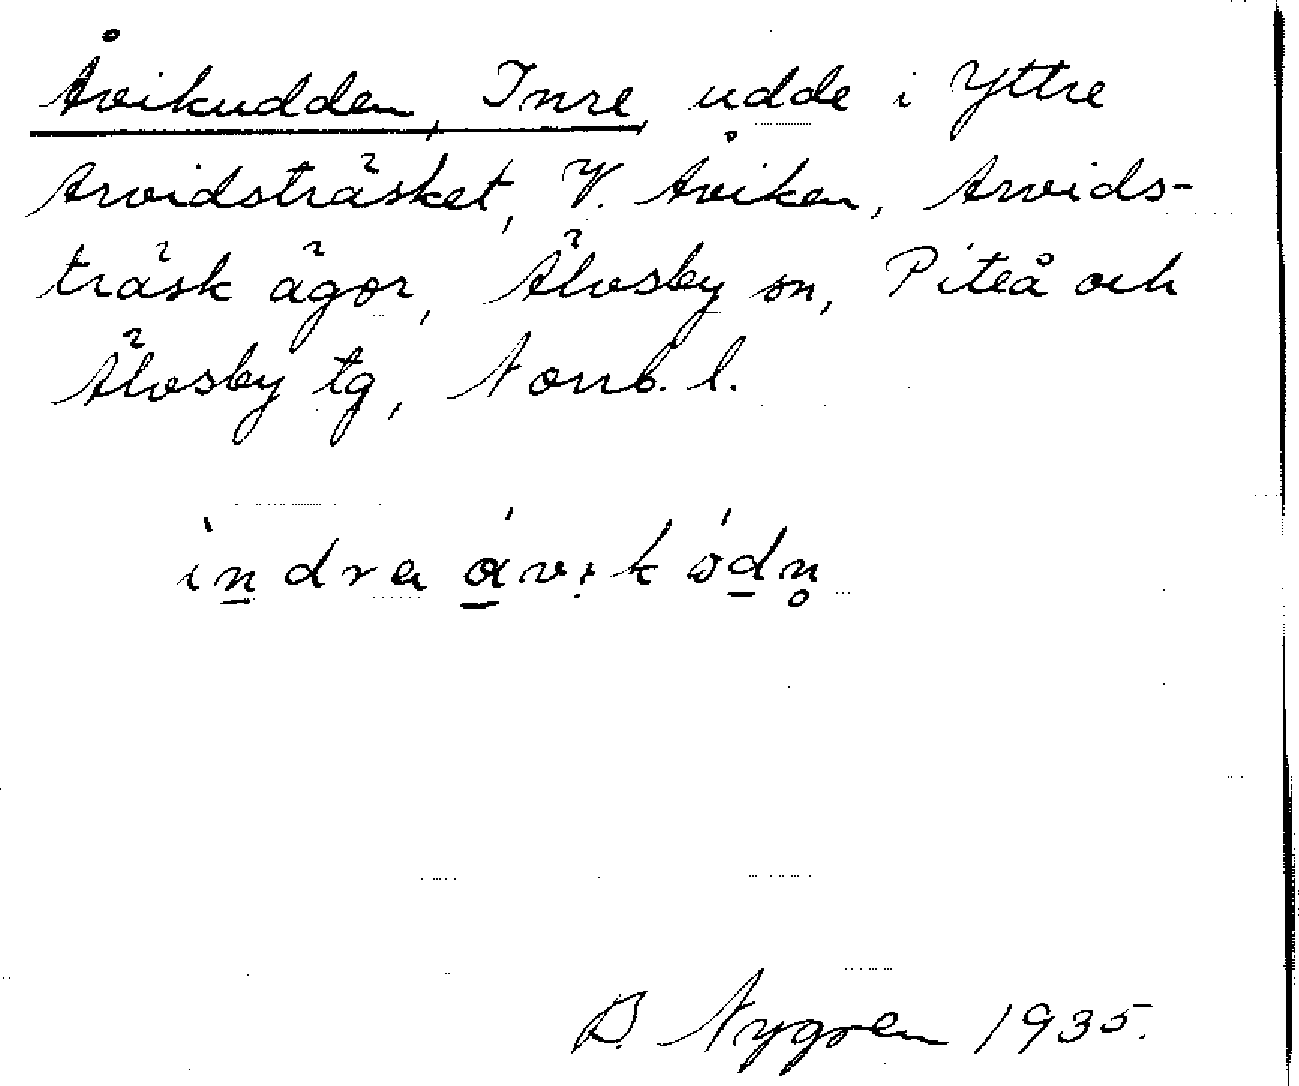 Åvikudden, Inre, udde i Yttre
Arvidsträsket, V. Åviken, Arvids-
träsk ägor, Älvsby sn, Piteå och
Älvsby tg, Norrb. l.
B. Nygren 1935.